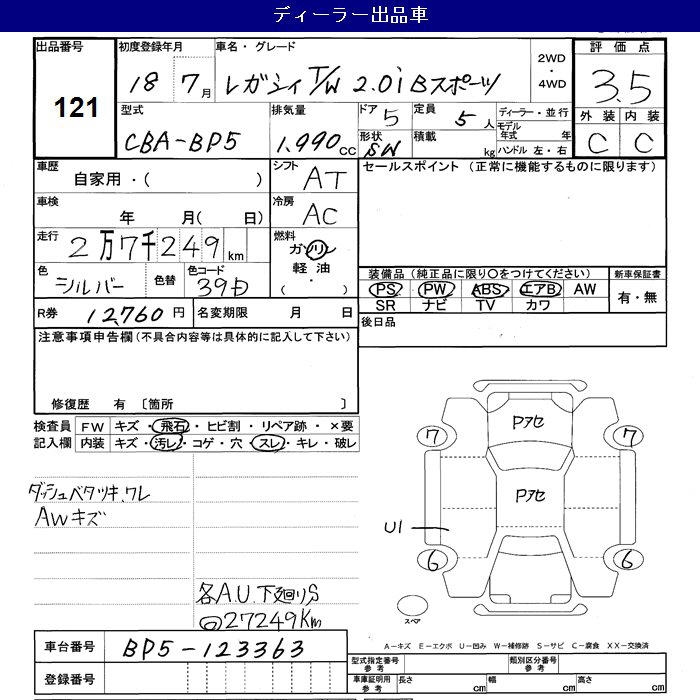 ディーラー出品車
出品番号 初度登録年月 車名・グレード 2WD・4WD 評価点
121 18 7月 レガシィT/W 2.0i Bスポーツ 3.5
型式 排気量 ドア 5 定員 5人 ディーラー・並行 外装 内装
CBA-BP5 1,990cc 形状 SW 積載 kg モデル年式 年 ハンドル 左・右 C C
車歴 シフト セールスポイント (正常に機能するものに限ります)
自家用・( ) AT
車検 冷房
年 月( 日) AC
走行 2万7千249km 燃料 ガソリン
軽油
( ・ )
色 シルバー 色替 色コード 39D
装備品(純正品に限り○をつけてください) 新車保証書
PS PW ABS エアB AW 有・無
SR ナビ TV カワ
R券 12,760円 名変期限 月 日 後日品
注意事項申告欄(不具合内容等は具体的に記入して下さい)
修復歴 有 〔箇所 〕
検査員 FW キズ・飛石・ヒビ割・リペア跡・×要
記入欄 内装 キズ・汚レ・コゲ・穴・スレ・キレ・破レ
ダッシュベタツキ.ワレ
AWキズ
各A.U.下廻りS
27249Km
Pアセ
7 7
Pアセ
U1
6 6
スペア
A−キズ E−エクボ U−凹み W−補修跡 S−サビ C−腐食 XX−交換済
車台番号 BP5-123363
登録番号
型式指定番号 参考 類別区分番号 参考
車庫証明用 参考 長さ cm 幅 cm 高さ cm